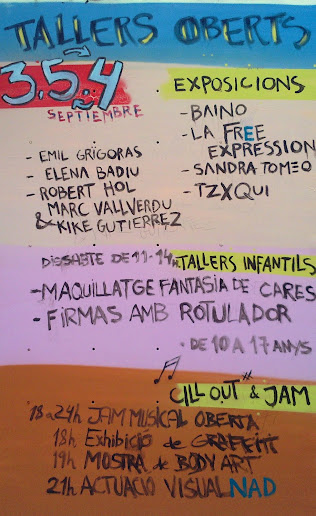 TALLERS OBERTS
3,5,4
SEPTIEMBRE
- EMIL GRIGORAS
- ELENA BADIU
- ROBERT HOL
MARC VALLVERDU
& KIKE GUTIERREZ
EXPOSICIONS
- BAINO
- LA FREE
EXPRESSION
- SANDRA TOMEO
- TZXQUI
DISSABTE DE 11-14h TALLERS INFANTILS
- MAQUILLATGE FANTASIA DE CARES
- FIRMAS AMB ROTULADOR
- DE 10 A 17 ANYS
CILL OUT & JAM
18 a 24h JAM MUSICAL OBERTA
18h Exhibició de GRAFFITI
19h MOSTRA de BODY ART
21h ACTUACIÓ VISUAL NAD